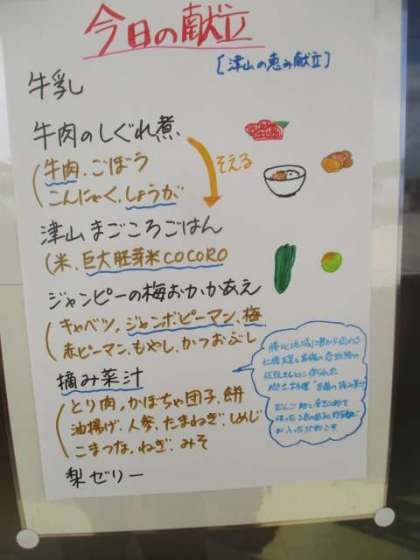 今日の献立
[津山の恵み献立]
牛乳
牛肉のしぐれ煮
(牛肉、ごぼう
こんにゃく、しょうが
そえる
津山まごころごはん
(米、巨大胚芽米COCORO
ジャンピーの梅おかかあえ
(キャベツ、ジャンボピーマン、梅
赤ピーマン、もやし、かつおぶし
摘み菜汁
(とり肉、かぼちゃ団子、餅
油揚げ、人参、たまねぎ、しめじ
こまつな、ねぎ、みそ
梨ゼリー